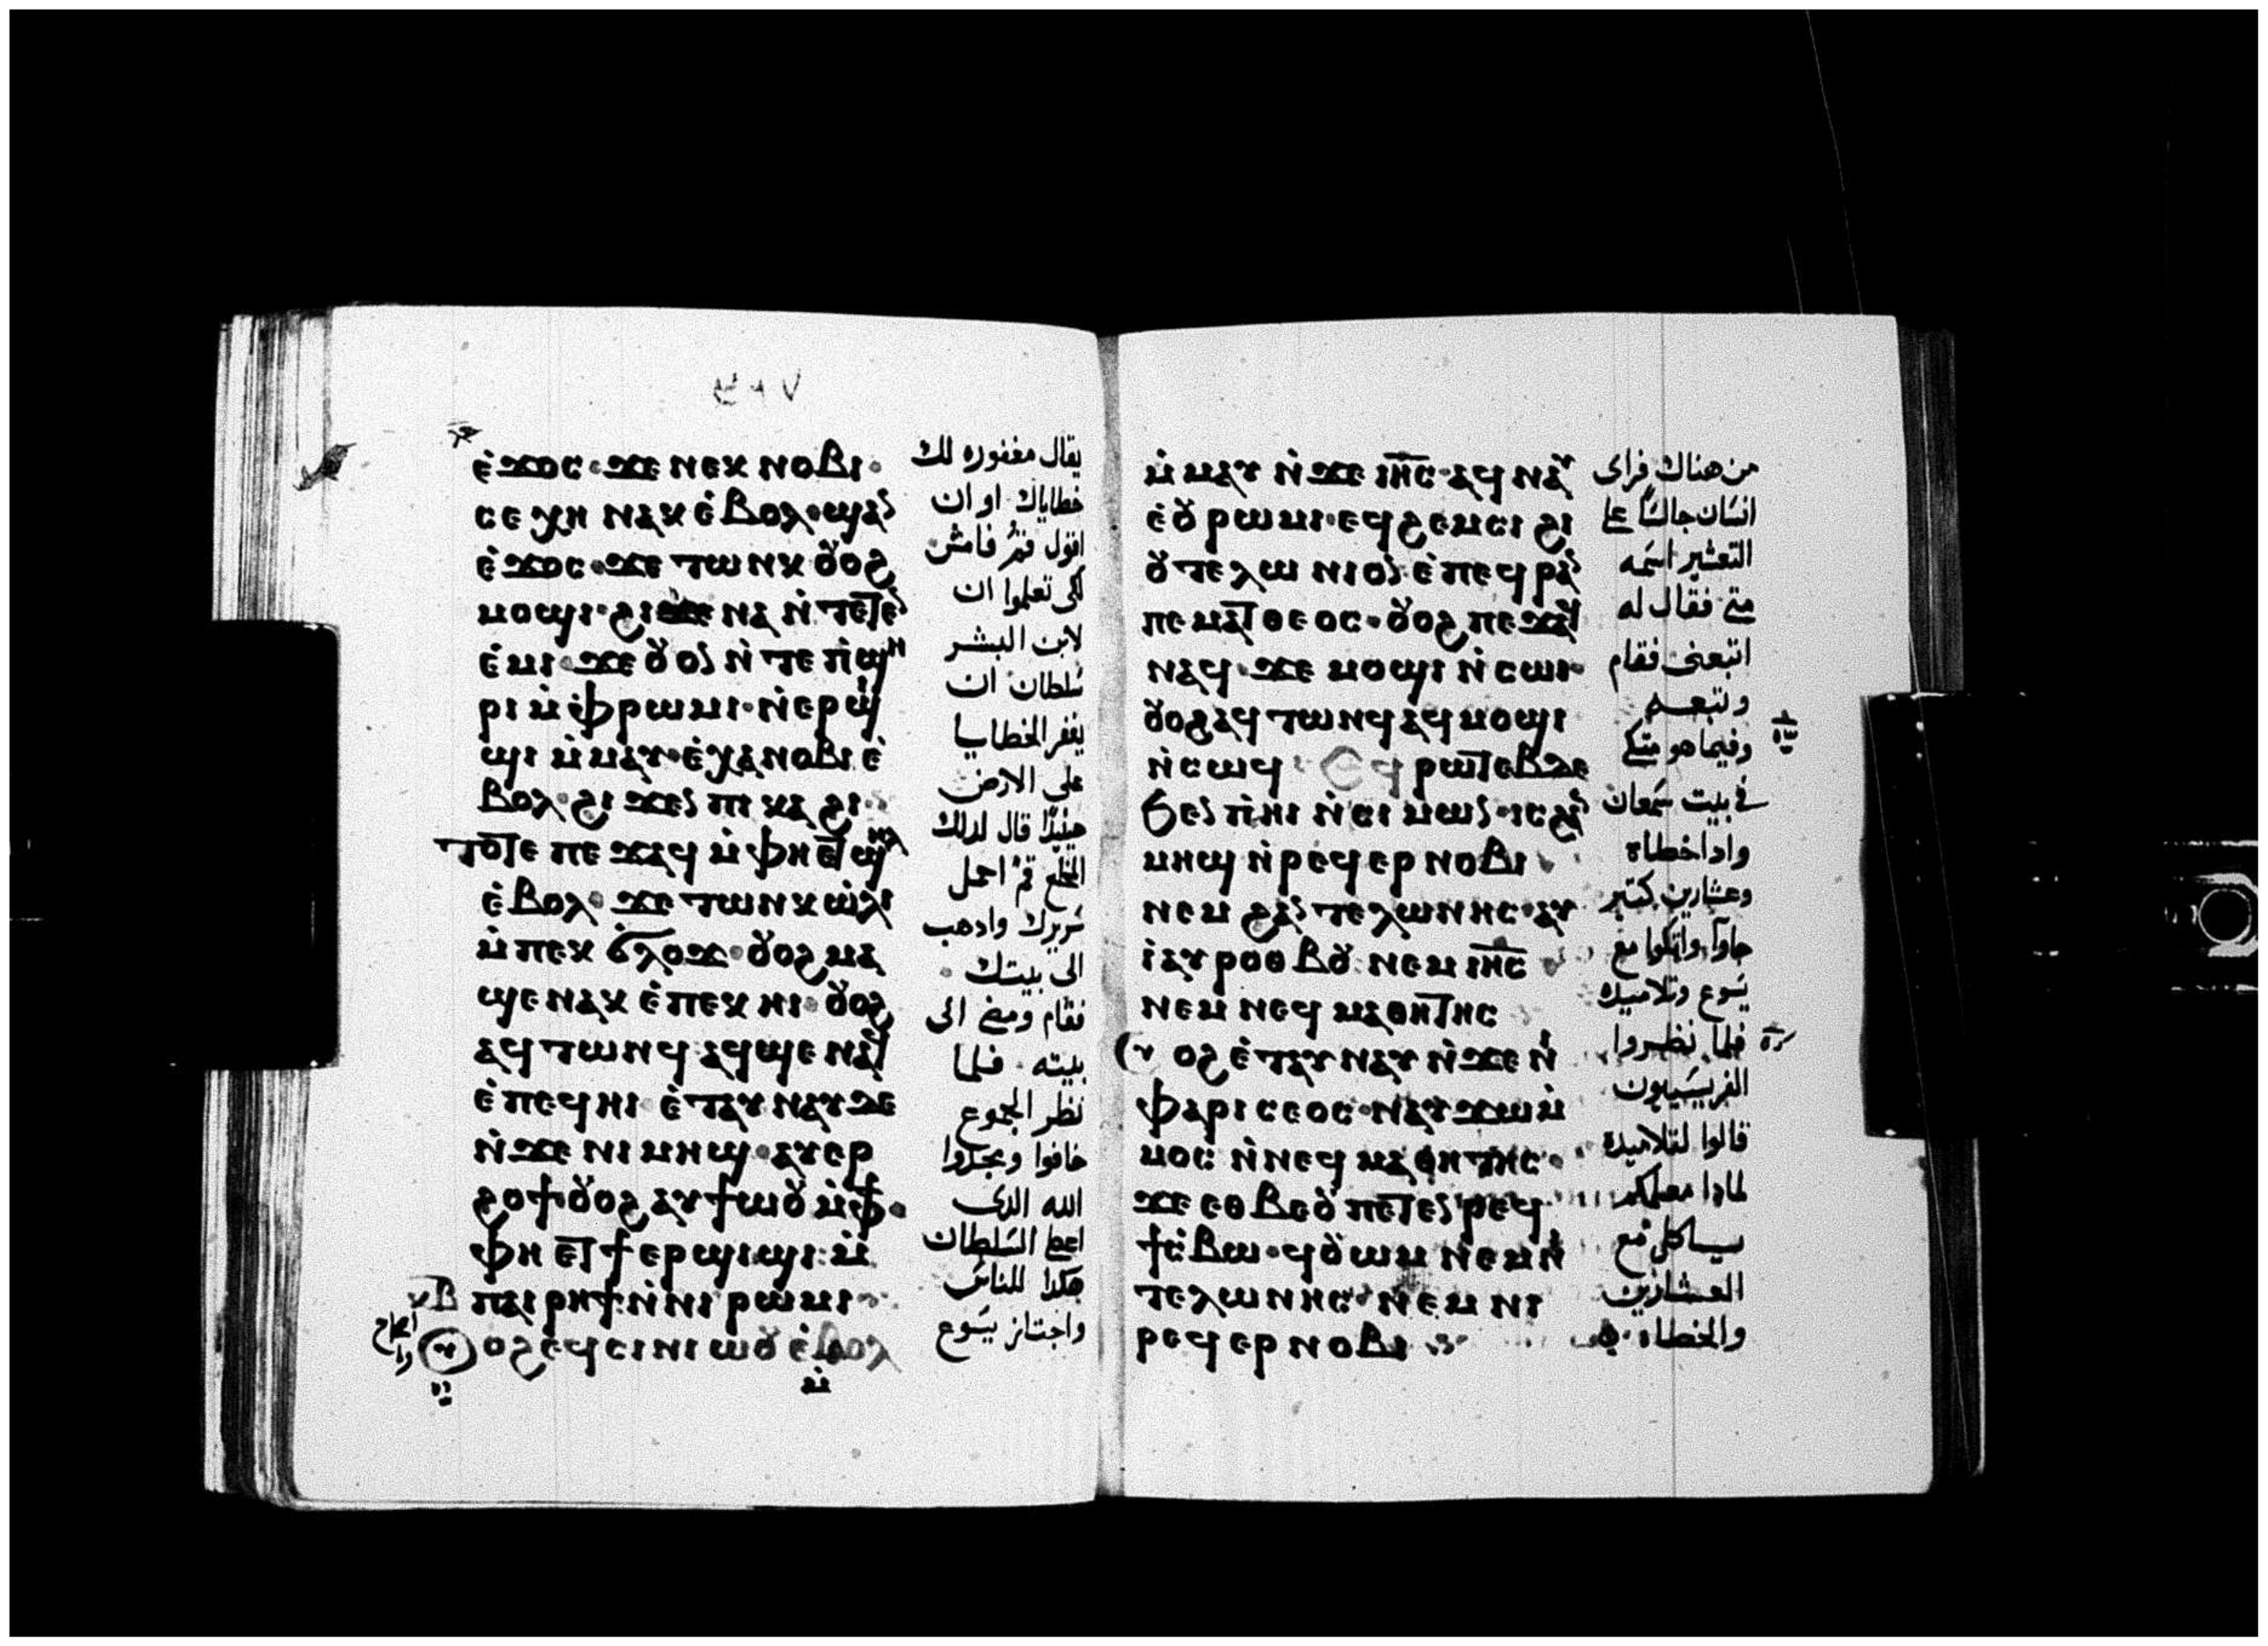 ⲉ̀ϫⲟⲥ·ϫⲉ ⲛⲉⲕ ⲛⲟⲃⲓ·
ⲥⲉ ⲭⲏ ⲛⲁⲕ ⲉ̀ⲃⲟⲗ·ϣⲁⲛ
ⲉ̀ϫⲟⲥ·ϫⲉ ⲧⲱⲛⲕ ⲟⲩⲟϩ
ⲙⲟϣⲓ·ϩⲓⲛⲁ ⲛ̀ⲧⲉⲧⲉⲛ
ⲉ̀ⲙⲓ ϫⲉ ⲟⲩⲟⲛ ⲛ̀ⲧⲉ ⲡ̀ϣⲏ
ⲣⲓ ⲙ̀ⲫⲣⲱⲙⲓ·ⲛ̀ⲉⲣϣⲓ
ϣⲓ ⲙ̀ⲙⲁⲩ·ⲉ̀ⲭⲁ ⲛⲟⲃⲓ ⲉ̀
ⲃⲟⲗ·ϩⲓϫⲉⲛ ⲡⲓ ⲕⲁϩⲓ·
ⲧⲟⲧⲉ ⲡⲉϫⲁϥ ⲙ̀ⲫⲏ ⲉⲧϣⲏⲗ
ⲉ̀ⲃⲟⲗ·ϫⲉ ⲧⲱⲛⲕ ⲱ̀ⲗⲓ
ⲙ̀ⲡⲉⲕ ϭⲗⲟϫ·ⲟⲩⲟϩ ⲙⲁ
ϣⲉ ⲛⲁⲕ ⲉ̀ⲡⲉⲕ ⲏⲓ·ⲟⲩⲟϩ
ⲁϥⲧⲱⲛϥ ⲁϥϣⲉ ⲛⲁϥ
ⲉ̀ⲡⲉϥⲏⲓ ⲉ̀ⲧⲁⲩⲛⲁⲩ ⲇⲉ
ⲛ̀ϫⲉ ⲛⲓ ⲙⲏϣ·ⲁⲩⲉⲣ
ϩⲟϯ·ⲟⲩⲟϩ ⲁⲩϯⲱⲟⲩ ⲙ̀ⲫϯ·
ⲫⲏ ⲉⲧϯⲉⲣϣⲓϣⲓ·ⲙ̀
ⲡⲁⲓ ⲣⲏϯ·ⲛ̀ⲛⲓ ⲣⲱⲙⲓ·
ⲟⲩⲟϩ ⲉϥⲥⲓⲛⲓⲱⲟⲩ ⲉ̀ⲃⲟⲗ
ⲙ̀
يقال مغفوره لك
خطاياك او ان
اقول قم فامش
لكى تعلموا ان
لابن البشر
سلطان ان
يغفر الخطايا
على الارض
حينيذا قال لدلك
المخلع قم احمل
سريرك وادهب
الى بيتك
فقام ومضى الى
بيته فلما
نظر الجموع
خافوا ومجدوا
الله الدى
اعطا السلطان
هكدا للناس
واجتاز يسوع
ⲙ̀ⲙⲁⲩ ⲛ̀ϫⲉ ⲓⲏⲥ·ⲁϥⲛⲁⲩ
ⲉ̀ⲟⲩⲣⲱⲙⲓ·ⲉϥϩⲉⲙⲥⲓ ϩⲓ
ⲟⲩⲧⲉⲗⲱⲛⲓⲟⲛ·ⲉ̀ⲡⲉϥⲣⲁⲛ
ⲡⲉ ⲙⲁⲧⲑⲉⲟⲥ·ⲟⲩⲟϩ ⲡⲉϫⲁϥ
ⲛⲁϥ·ϫⲉ ⲙⲟϣⲓ ⲛ̀ⲥⲱⲓ·
ⲟⲩⲟϩ ⲁϥⲧⲱⲛϥ ⲁϥⲙⲟϣⲓ
ⲛ̀ⲥⲱϥ· ⲉϥⲣⲱⲧⲉⲃ ⲇⲉ
ϧⲉⲛ ⲡ̀ⲏⲓ ⲛ̀ⲥⲓⲙⲱⲛ·ⲓⲥ ϩⲁⲛ
ⲙⲏϣ ⲛ̀ⲣⲉϥⲉⲣⲛⲟⲃⲓ
ⲛⲉⲙ ϩⲁⲛ ⲧⲉⲗⲱⲛⲏⲥ·ⲁⲩ
ⲓ̀ ⲁⲩⲣⲟⲑⲃⲟⲩ·ⲛⲉⲙ ⲓⲏⲥ
ⲛⲉⲙ ⲛⲉϥ ⲙⲁⲑⲏⲧⲏⲥ
ⲟⲩⲟϩ ⲉ̀ⲧⲁⲩⲛⲁⲩ ⲛ̀ϫⲉ ⲛⲓ
ⲫⲁⲣⲓⲥⲉⲟⲥ·ⲛⲁⲩϫⲱ ⲙ̀
ⲙⲟⲥ ⲛ̀ⲛⲉϥ ⲙⲁⲑⲏⲧⲏⲥ·
ϫⲉ ⲉⲑⲃⲉⲟⲩ ⲡⲉⲧⲉⲛ ⲣⲉϥ
ϯⲥ̀ⲃⲱ·ϥⲟⲩⲱⲙ ⲛⲉⲙ ⲛⲓ
ⲧⲉⲗⲱⲛⲏⲥ·ⲛⲉⲙ ⲛⲓ
ⲣⲉϥⲉⲣⲛⲟⲃⲓ
من هناك فراى
انسان جالسا على
التعشير اسمه
متى فقال له
اتبعنى فقام
وتبعه
وفيما هو متكى
فى بيت سمعان
وادا خطاة
وعشارين كتير
جاوا واتكوا مع
يسوع وتلاميده
فلما نظروا
الفريسيون
قالوا لتلاميده
لمادا معلمكم
ياكل مع
العشارين
والخطاه